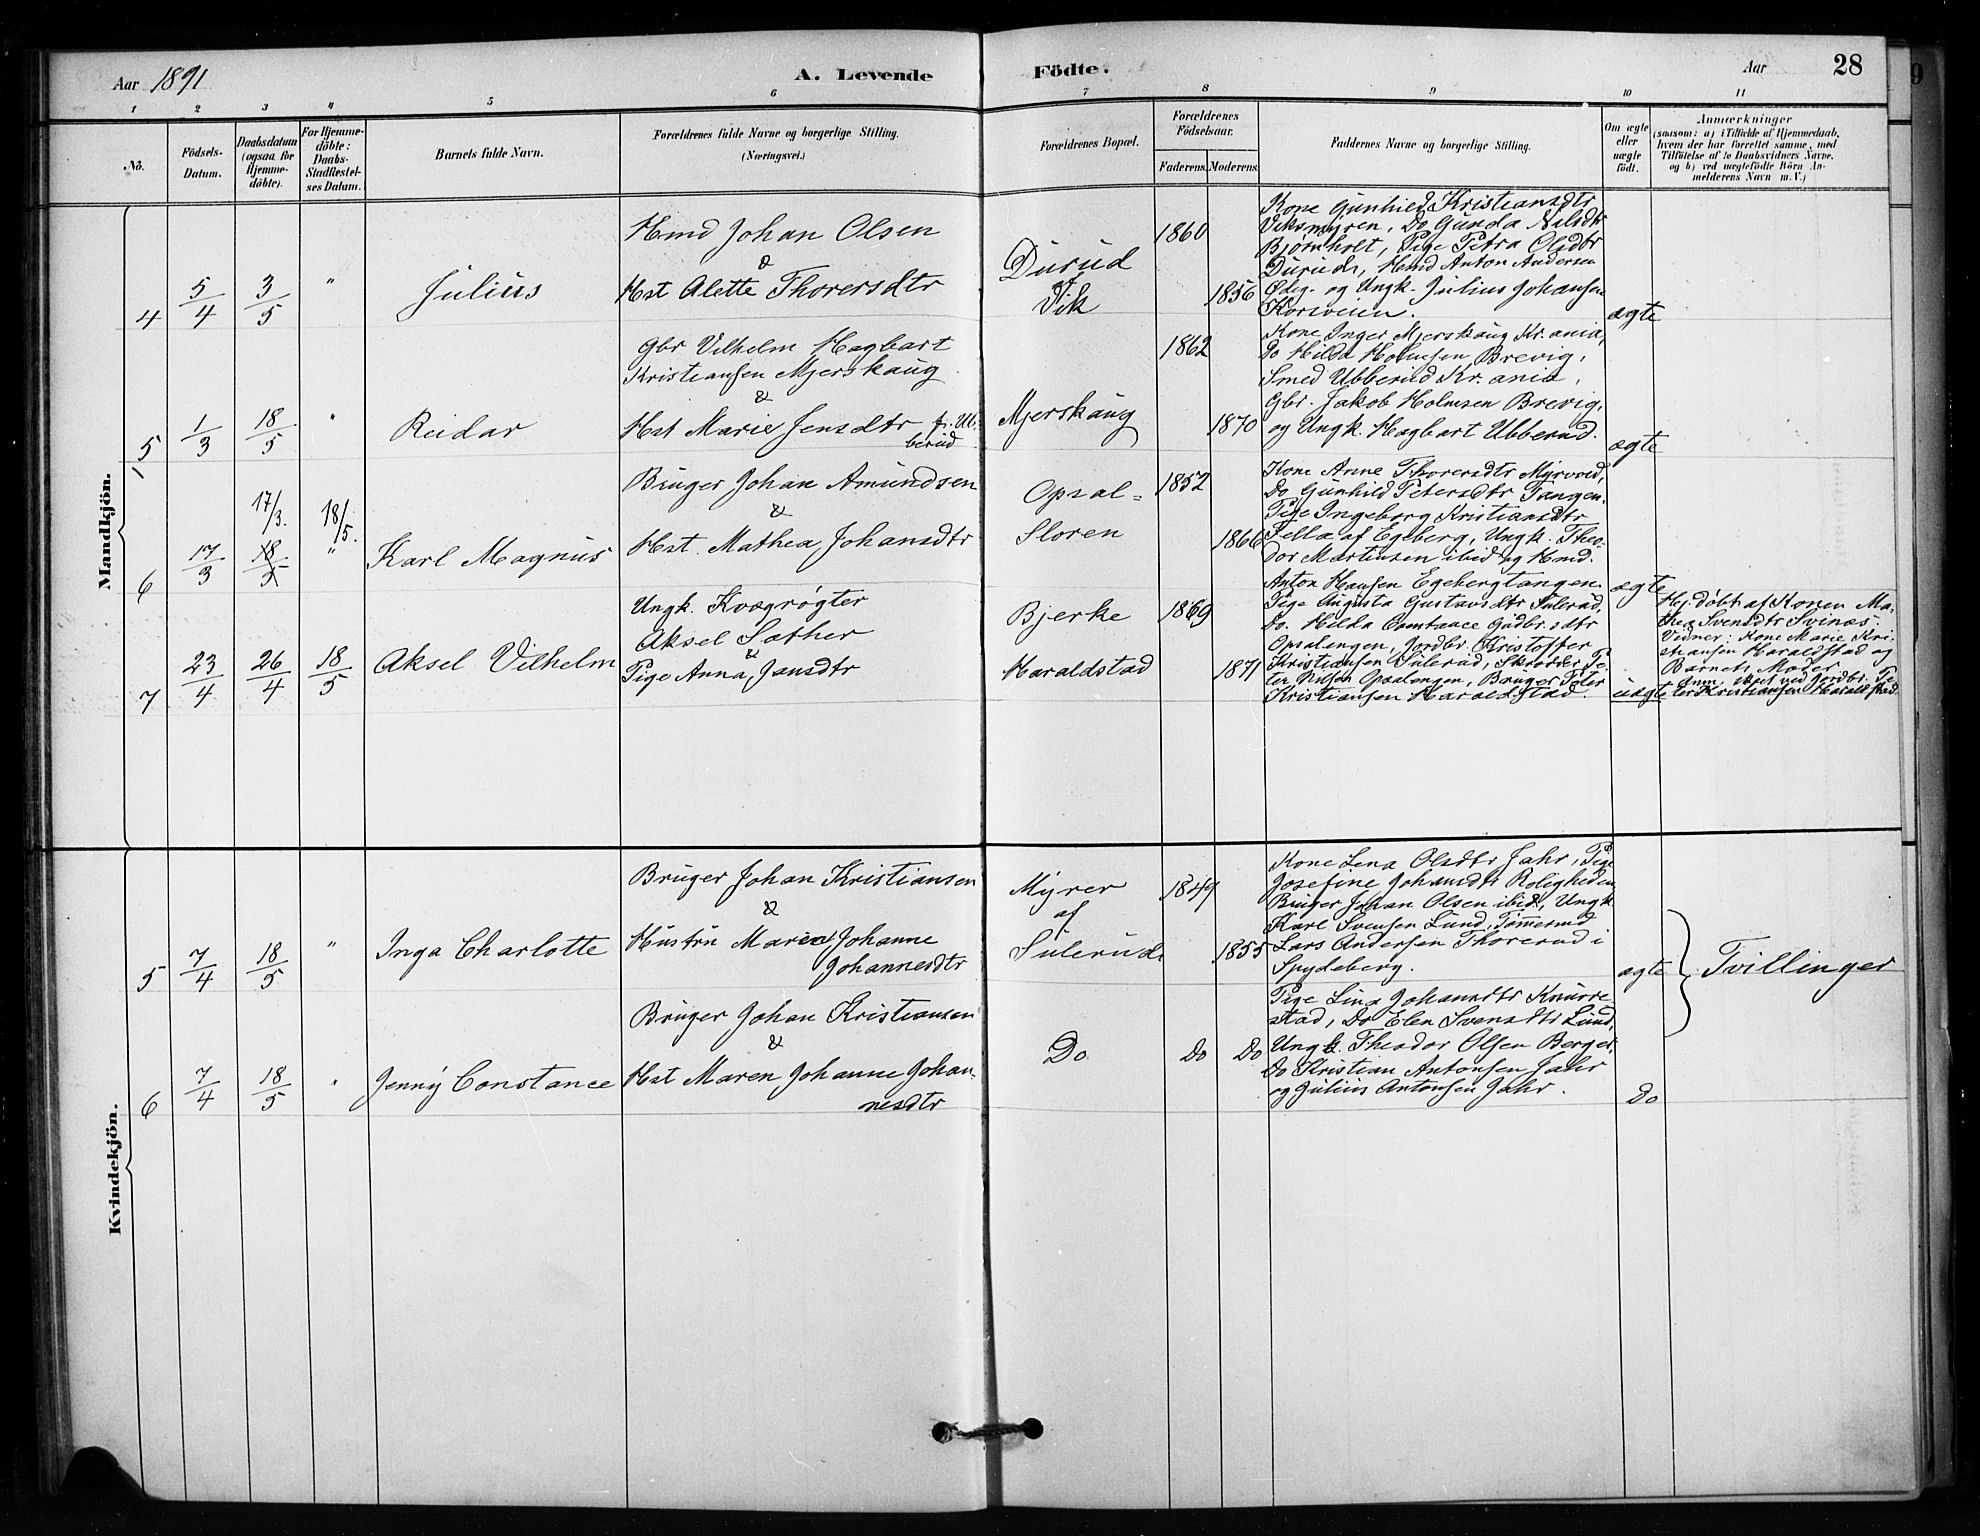 Aar 1891
A. Levende Födte.
Aar
28
1 2 3 4 5 6 7 8 9 10 11
No.
Födsels-
Datum.
Daabsdatum
(ogsaa for
Hjemme-
döbte).
For Hjemme-
döbte:
Daabs-
Stadfæstel-
ses Datum.
Barnets fulde Navn.
Forældrenes fulde Navne og borgerlige Stilling.
(Næringsvei.)
Forældrenes Bopæl.
Forældrenes
Födselsaar.
Faderens. Moderens.
Faddernes Navne og borgerlige Stilling.
Om ægte
eller
uægte
födt.
Anmærkninger
(saasom: a) i Tilfælde af Hjemmedaab,
hvem der har forrettet samme, med
Tilföielse af to Daabsvidners Navne,
og b) ved uægtefödte Börn An-
melderens Navn m. V.)
Mandkjön.
4
5/4
3/5
"
Julius
Hmd Johan Olsen
&
Hst Alette Thorersdtr
Durud
af
Vik
1860
1856
Kone Gunhild Kristiansdtr
Viksmyren, Do Gunda Nilsdtr
Bjørnholt, Pige Petra Olsdtr
Durud, Hmd Anton Andersen
Ødeg. og Ungk. Julius Johansen
Korsveien.
ægte
5
1/3
18/5
"
Reidar
Gbr Vilhelm Hagbart
Kristiansen Mjerskaug
&
Hst Marie Jensdtr f. Ub-
berud
Mjerskaug
1862
1870
Kone Inger Mjerskaug Kr.ania,
Do Hilda Holmsen Brevig,
Smed Ubberud Kr.ania,
Gbr. Jakob Holmsen Brevig,
og Ungk. Hagbart Ubberud.
ægte
6
17/3
17/3.
18/5
18/5.
"
Karl Magnus
Bruger Johan Amundsen
&
Hst. Mathea Johansdtr
Opsal-
Sloren
1852
1866
Kone Anne Thorersdtr Myrvold,
Do Gunhild Petersdtr Tangen,
Pige Ingeborg Kristiansdtr
Fella af Egeberg, Ungk. Theo-
dor Martinsen ibid og Hmd.
Anton Hansen Egebergtangen.
ægte
7
23/4
26/4
18/5
Aksel Vilhelm
Ungk. Kvægrøgter
Aksel Sæther
&
Pige Anna Jansdtr
Bjerke
Haraldstad
1869
1871
Pige Augusta Gustavsdtr Sulerud,
Do. Hilda Constance Gudbr.sdtr
Opsalengen, Jordbr. Kristoffer
Kristiansen Sulerud, Skræder Pe-
ter Nilsen Opsalengen, Bruger Peter
Kristiansen Haraldstad.
uægte
Hj.døbt af Konen Ma-
thea Svensdtr Svinæs.
Vidner: Kone Marie Kri-
stiansen Haraldstad og
Barnets Moder.
Anm. skeet ved Jordbr. Pe-
ter Kristiansen Haraldstad
Kvindekjön.
5
7/4
18/5
"
Inga Charlotte
Bruger Johan Kristiansen
&
Hustru Maren Johanne
Johannesdtr
Myrer
af
Sulerud
1849
1855
Kone Lena Olsdtr Jahr, Pige
Josefine Johansdtr Roligheden
Bruger Johan Olsen ibid, Ungk
Karl Svensen Lund, Tømmermd
Lars Andersen Thorerud i
Spydeberg.
ægte
Tvillinger
6
7/4
18/5
"
Jenny Constance
Bruger Johan Kristiansen
&
Hst Maren Johanne Johan-
nesdtr
Do
Do
Do
Pige Lina Johansdtr Knurre-
stad, Do Elen Svensdtr Lund,
Ungk. Theodor Olsen Berger,
Do Kristian Antonsen Jahr
og Julius Antonsen Jahr.
Do